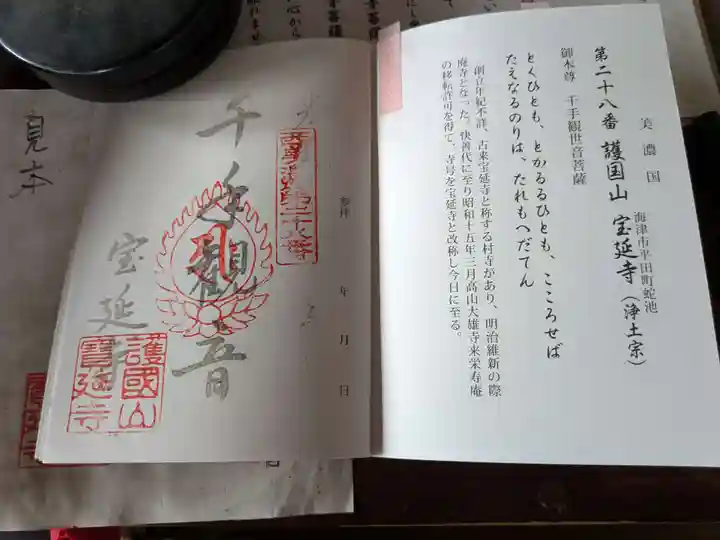 美濃国
海津市平田町蛇池
第二十八番 護国山 宝延寺（浄土宗）
御本尊 千手観世音菩薩
とくひとも、とかるるひとも、こころせば
たえなるのりは、たれもへだてん
創立年紀不詳、古来宝延寺と称する村寺があり、明治維新の際
廃寺となった。快善代に至り昭和十五年三月高山大雄寺末栄寿庵
の移転許可を得て、寺号を宝延寺と改称し今日に至る。
参拝 年 月 日
千手観音
宝延寺
護國山
寶延寺
見本